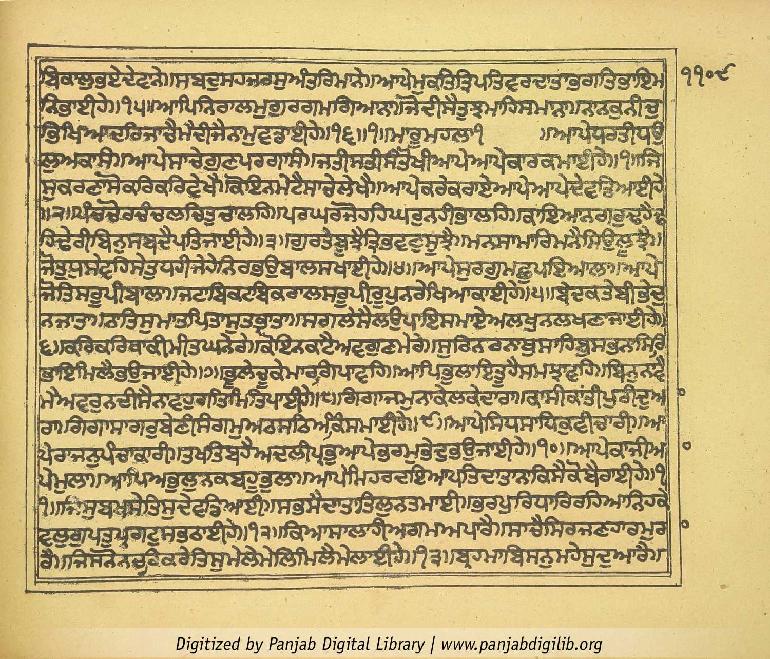 ਬਿਕਾਲਭਏਦੇਵਾਨੇ॥ਸਬਦੁਸਹਜਰਸੁਅੰਤਰਿਮਾਨੇ॥ਆਪੇਮੁਕਤਿਤ੍ਰਿਪਤਿਵਰਦਾਤਾਭਗਤਿਭਾਇਮ ੧੧੦੯
ਨਿਭਾਈਹੇ॥੧੫॥ਆਪਿਨਿਰਾਲਮੁਗੁਰਗਮਗਿਆਨਾ॥ਜੋਦੀਸੈਤੁਝਮਾਹਿਸਮਾਨਾ॥ਨਾਨਕੁਨੀਚੁ
ਭਿਖਿਆਦਰਿਜਾਚੈਮੈਦੀਜੈਨਾਮੁਵਡਾਈਹੇ॥੧੬॥੧॥ਮਾਰੂਮਹਲਾ੧ ॥ਆਪੇਧਰਤੀਧਉ
ਲੁਅਕਾਸੰ॥ਆਪੇਸਾਚੇਗੁਣਪਰਗਾਸੰ॥ਜਤੀਸਤੀਸੰਤੋਖੀਆਪੇਆਪੇਕਾਰਕਮਾਈਹੇ॥੧॥ਜਿ
ਸੁਕਰਣਾਸੋਕਰਿਕਰਿਵੇਖੈ॥ਕੋਇਨਮੇਟੈਸਾਚੇਲੇਖੈ॥ਆਪੇਕਰੇਕਰਾਏਆਪੇਆਪੇਦੇਵਡਿਆਈਹੇ
॥੨॥ਪੰਚਚੋਰਚੰਚਲਚਿਤੁਚਾਲਹਿ॥ਪਰਘਰਜੋਹਹਿਘਰੁਨਹੀਭਾਲਹਿ॥ਕਾਇਆਨਗਰੁਢਹੈਢ
ਹਿਢੇਰੀਬਿਨੁਸਬਦੈਪਤਿਜਾਈਹੇ॥੩॥ਗੁਰਤੇਬੂਝੈਤ੍ਰਿਭਵਣੁਸੂਝੈ॥ਮਨਸਾਮਾਰਿਮਨੈਸਿਉਲੂਝੈ॥
ਜੋਤੁਧੁਸੇਵਹਿਸੇਤੁਧਹੀਜੇਹੇਨਿਰਭਉਬਾਲਸਖਾਈਹੇ॥੪॥ਆਪੇਸੁਰਗੁਮਛੁਪਇਆਲਾ॥ਆਪੇ
ਜੋਤਿਸਰੂਪੀਬਾਲਾ॥ਜਟਾਬਿਕਟਬਿਕਰਾਲਸਰੂਪੀਰੂਪੁਨਰੇਖਿਆਕਾਈਹੇ॥੫॥ਬੇਦਕਤੇਬੀਭੇਦੁ
ਨਜਾਤਾ॥ਨਾਤਿਸੁਮਾਤਪਿਤਾਸੁਤਭ੍ਰਾਤਾ॥ਸਗਲੇਸੈਲਉਪਾਇਸਮਾਏਅਲਖੁਨਲਖਣਾਜਾਈਹੇ॥
੬॥ਕਰਿਕਰਿਥਾਕੀਮੀਤਘਨੇਰੇ॥ਕੋਇਨਕਾਟੈਅਵਗੁਣਮੇਰੇ॥ਸੁਰਿਨਰਨਾਥੁਸਾਹਿਬੁਸਭਨਾਸਿਰਿ
ਭਾਇਮਿਲੈਭਉਜਾਈਹੇ॥੭॥ਭੂਲੇਚੂਕੇਮਾਰਗਿਪਾਵਹਿ॥ਆਪਿਭੁਲਾਇਤੂਹੈਸਮਝਾਵਹਿ॥ਬਿਨੁਨਾਵੈ
ਮੈਅਵਰੁਨਦੀਸੈਨਾਵਹੁਗਤਿਮਿਤਿਪਾਈਹੇ॥੮॥ਗੰਗਾਜਮੁਨਾਕੇਲਕੇਦਾਰਾ॥ਕਾਸੀਕਾਂਤੀਪੁਰੀਦੁਆ
ਰਾ॥ਗੰਗਾਸਾਗਰੁਬੇਣੀਸੰਗਮੁਅਠਸਠਿਅੰਕਿਸਮਾਈਹੇ॥੯॥ਆਪੇਸਿਧਸਾਧਿਕੁਵੀਚਾਰੀ॥ਆ
ਪੇਰਾਜਨੁਪੰਚਾਕਾਰੀ॥ਤਖਤਿਬਹੈਅਦਲੀਪ੍ਰਭੁਆਪੇਭਰਮੁਭੇਦੁਭਉਜਾਈਹੇ॥੧੦॥ਆਪੇਕਾਜੀਆ
ਪੇਮੁਲਾ॥ਆਪਿਅਭੁਲੁਨਕਬਹੂਭੁਲਾ॥ਆਪੇਮਿਹਰਦਇਆਪਤਿਦਾਤਾਨਾਕਿਸੈਕੋਬੈਰਾਈਹੇ॥੧
੧॥ਜਿਸੁਬਖਸੇਤਿਸੁਦੇਵਡਿਆਈ॥ਸਭਸੈਦਾਤਾਤਿਲੁਨਤਮਾਈ॥ਭਰਪੁਰਿਧਾਰਿਰਹਿਆਨਿਹਕੇ
ਵਲੁਗੁਪਤੁਪ੍ਰਗਟੁਸਭਠਾਈਹੇ॥੧੨॥ਕਿਆਸਾਲਾਹੀਅਗਮਅਪਾਰੈ॥ਸਾਚੇਸਿਰਜਣਹਾਰਮੁਰਾ
ਰੈ॥ਜਿਸਨੋਨਦਰਿਕਰੇਤਿਸੁਮੇਲੇਮੇਲਿਮਿਲੈਮੇਲਾਈਹੇ॥੧੩॥ਬ੍ਰਹਮਾਬਿਸਨੁਮਹੇਸੁਦੁਆਰੈ॥
Digitized by Panjab Digital Library | www.panjabdigilib.org